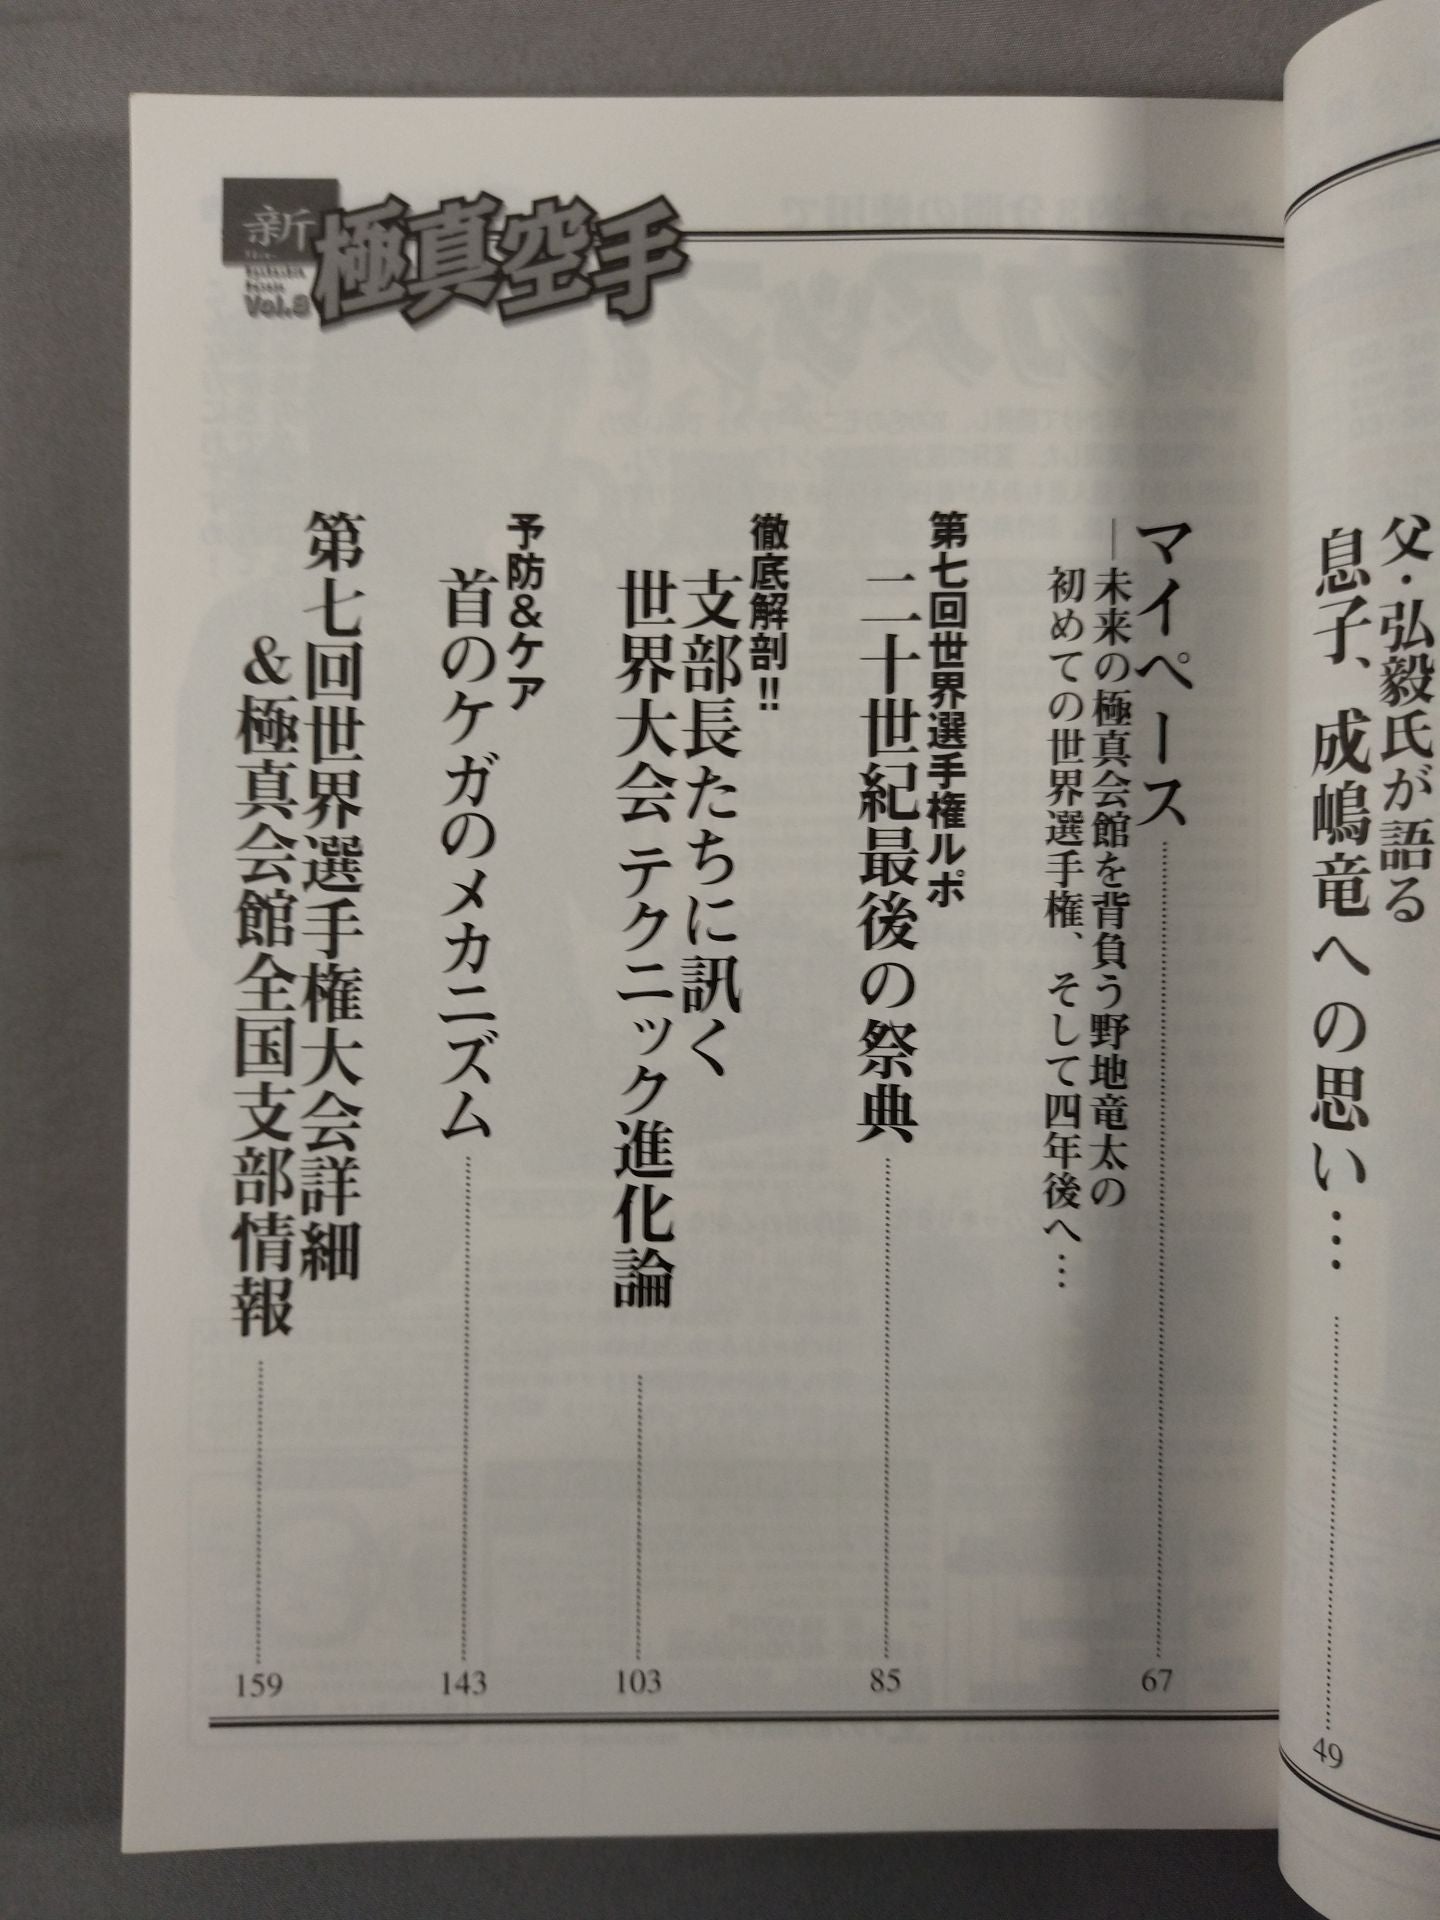 父・弘毅氏が語る
息子、成嶋竜への思い…
49
新
極真空手
Vol.8
マイペース
―未来の極真会館を背負う野地竜太の
初めての世界選手権、そして四年後へ…
67
第七回世界選手権ルポ
二十世紀最後の祭典
85
徹底解剖!!
支部長たちに訊く
世界大会テクニック進化論
103
予防&ケア
首のケガのメカニズム
143
第七回世界選手権大会詳細
&極真会館全国支部情報
159